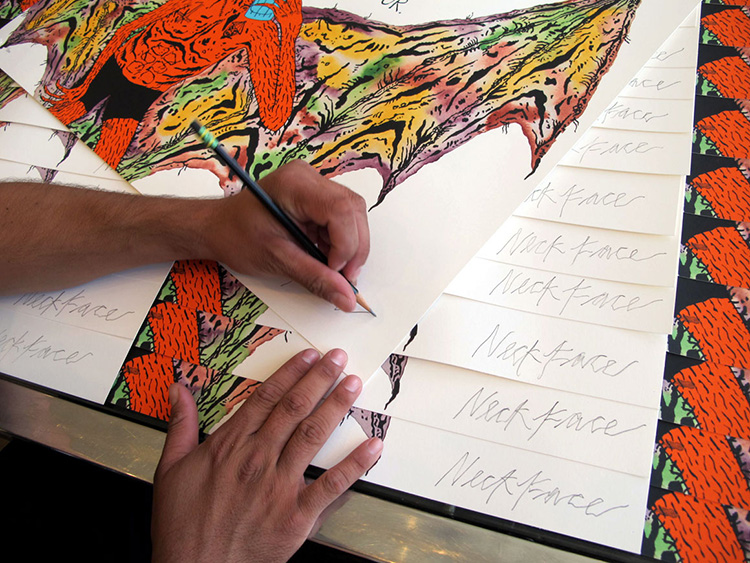 R.
Neck Face
Neck Face
Neck Face
Neck Face
Neck Face
Neck Face
Neck Face
Neck Face
Neck Face